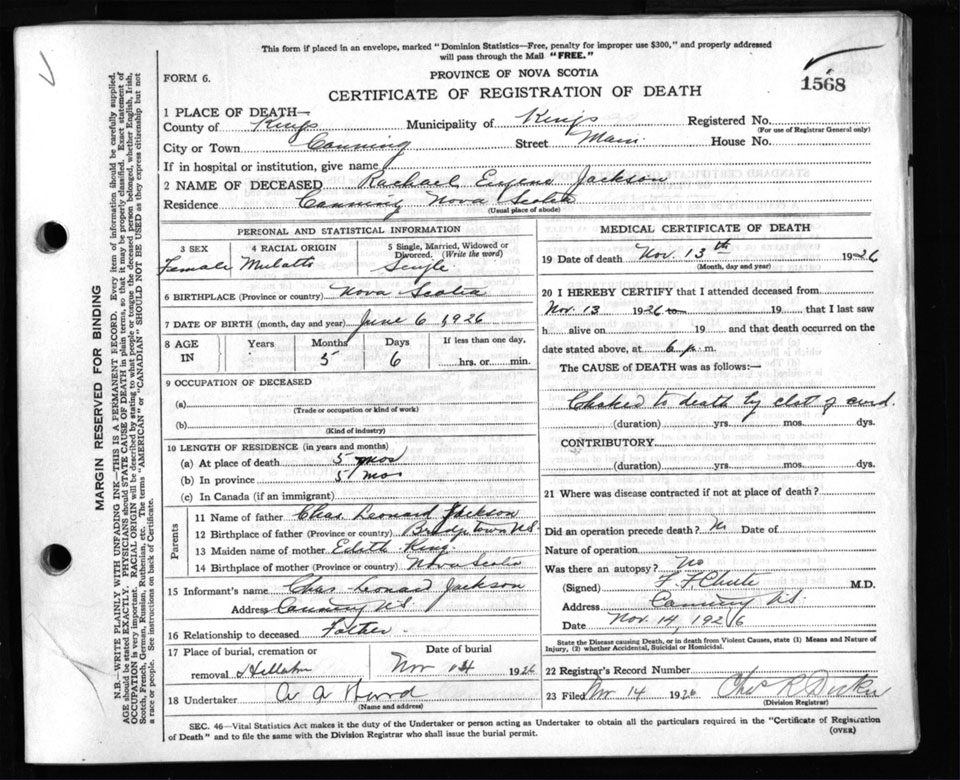 This form if placed in an envelope, marked "Dominion Statistics—Free, penalty for improper use $300," and properly addressed
will pass through the Mail "FREE."
FORM 6.
PROVINCE OF NOVA SCOTIA
1568
CERTIFICATE OF REGISTRATION OF DEATH
1 PLACE OF DEATH—
County of Kings Municipality of Kings Registered No.
(For use of Registrar General only)
City or Town Canning Street Main House No.
If in hospital or institution, give name
2 NAME OF DECEASED Rachael Eugene Jackson
Residence Canning Nova Scotia
(Usual place of abode)
PERSONAL AND STATISTICAL INFORMATION
3 SEX 4 RACIAL ORIGIN 5 Single, Married, Widowed or
Divorced. (Write the word)
Female Mulatto Single
6 BIRTHPLACE (Province or country) Nova Scotia
7 DATE OF BIRTH (month, day and year) June 6 1926
8 AGE IN Years Months Days If less than one day,
5 6 hrs. or min.
9 OCCUPATION OF DECEASED
(a)
(Trade or occupation or kind of work)
(b)
(Kind of industry)
10 LENGTH OF RESIDENCE (in years and months)
(a) At place of death 5 mos
(b) In province 5 mos
(c) In Canada (if an immigrant)
Parents
11 Name of father Chas. Leonard Jackson
12 Birthplace of father (Province or country) Bridgetown N.S.
13 Maiden name of mother Edith King
14 Birthplace of mother (Province or country) Nova Scotia
15 Informant's name Chas Leonard Jackson
Address Canning N.S.
16 Relationship to deceased Father
17 Place of burial, cremation or Date of burial
removal Nov 14 1926
18 Undertaker
(Name and address)
MEDICAL CERTIFICATE OF DEATH
19 Date of death Nov. 13th 1926
(Month, day and year)
20 I HEREBY CERTIFY that I attended deceased from
Nov. 13 1926 to 19 that I last saw
h alive on 19 and that death occurred on
date stated above, at 6 p. m.
The CAUSE of DEATH was as follows:—
Choked to death by clot of curd.
(duration) yrs. mos. dys.
CONTRIBUTORY
(duration) yrs. mos. dys.
21 Where was disease contracted if not at place of death?
Did an operation precede death? No Date of
Nature of operation
Was there an autopsy? No
(Signed) M.D.
Address Canning N.S.
Date Nov 14, 1926
State the Disease causing Death, or in death from Violent Causes, state (1) Means and Nature of
Injury, (2) whether Accidental, Suicidal or Homicidal.
22 Registrar's Record Number
23 Filed Nov 14 1926
(Division Registrar)
SEC. 46—Vital Statistics Act makes it the duty of the Undertaker or person acting as Undertaker to obtain all the particulars required in the "Certificate of Registration
of Death" and to file the same with the Division Registrar who shall issue the burial permit.
(OVER)
MARGIN RESERVED FOR BINDING
N.B.—WRITE PLAINLY WITH UNFADING INK—THIS IS A PERMANENT RECORD. Every item of information should be carefully supplied.
AGE should be stated EXACTLY. PHYSICIANS should STATE CAUSE OF DEATH in plain terms, so that it may be properly classified. Exact statement of
OCCUPATION is very important. RACIAL ORIGIN will be described by stating to what people or tongue the deceased person belonged, whether English, Irish,
Scotch, French, German, Russian, Ruthenian, etc. The terms "AMERICAN" or "CANADIAN" SHOULD NOT BE USED as they express citizenship but not
a race or people. See instructions on back of Certificate.